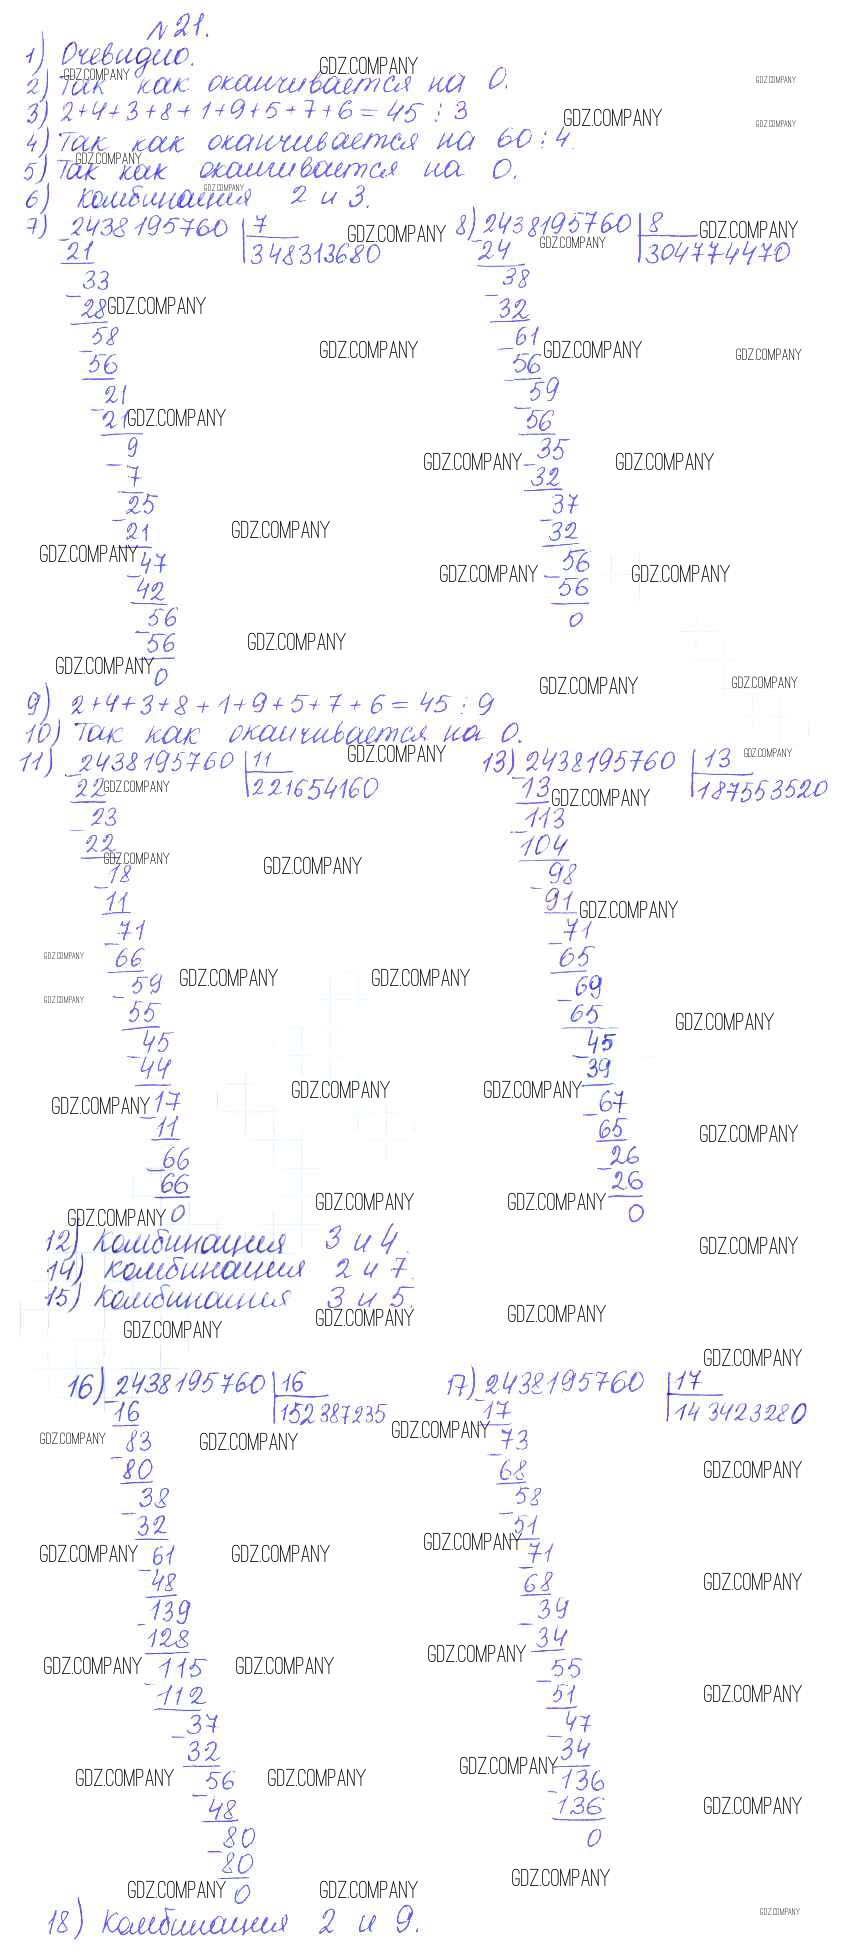 №21.
1) Очевидно.
2) Так как оканчивается на 0.
3) 2+4+3+8+1+9+5+7+6=45 : 3
4) Так как оканчивается на 60 : 4.
5) Так как оканчивается на 0.
6) комбинация 2 и 3.
7) 2438195760 | 7
348313680
21
33
28
58
56
21
21
9
7
25
21
47
42
56
56
0
8) 2438195760 | 8
304774470
24
38
32
61
56
59
56
35
32
37
32
56
56
0
9) 2+4+3+8+1+9+5+7+6=45 : 9
10) Так как оканчивается на 0.
11) 2438195760 | 11
221654160
22
23
22
18
11
71
66
59
55
45
44
17
11
66
66
0
13) 2438195760 | 13
187553520
13
113
104
98
91
71
65
69
65
45
39
67
65
26
26
0
12) Комбинация 3 и 4.
14) Комбинация 2 и 7.
15) Комбинация 3 и 5.
16) 2438195760 | 16
152387235
16
83
80
38
32
61
48
139
128
115
112
37
32
56
48
80
80
0
17) 2438195760 | 17
143423280
17
73
68
58
51
71
68
39
34
55
51
47
34
136
136
0
18) Комбинация 2 и 9.
GDZ.COMPANY